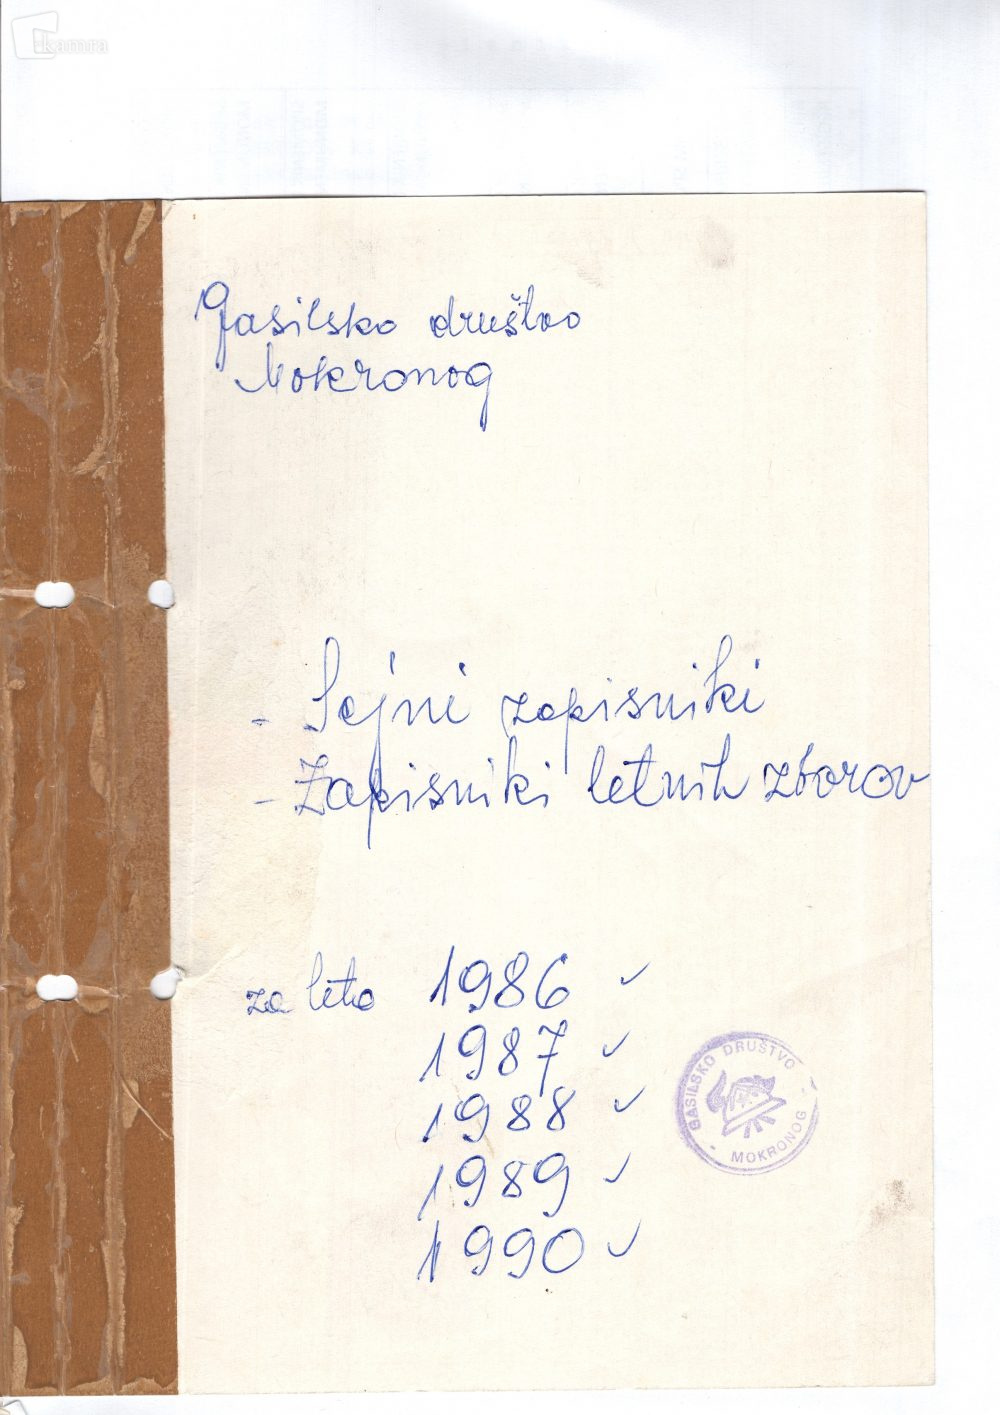 kamra
Gasilsko društvo
Mokronog
- Sejni zapisniki
- Zapisniki letnih zborov
za leto 1986 ✓
1987 ✓
1988 ✓
1989 ✓
1990 ✓
GASILSKO DRUŠTVO
- MOKRONOG -